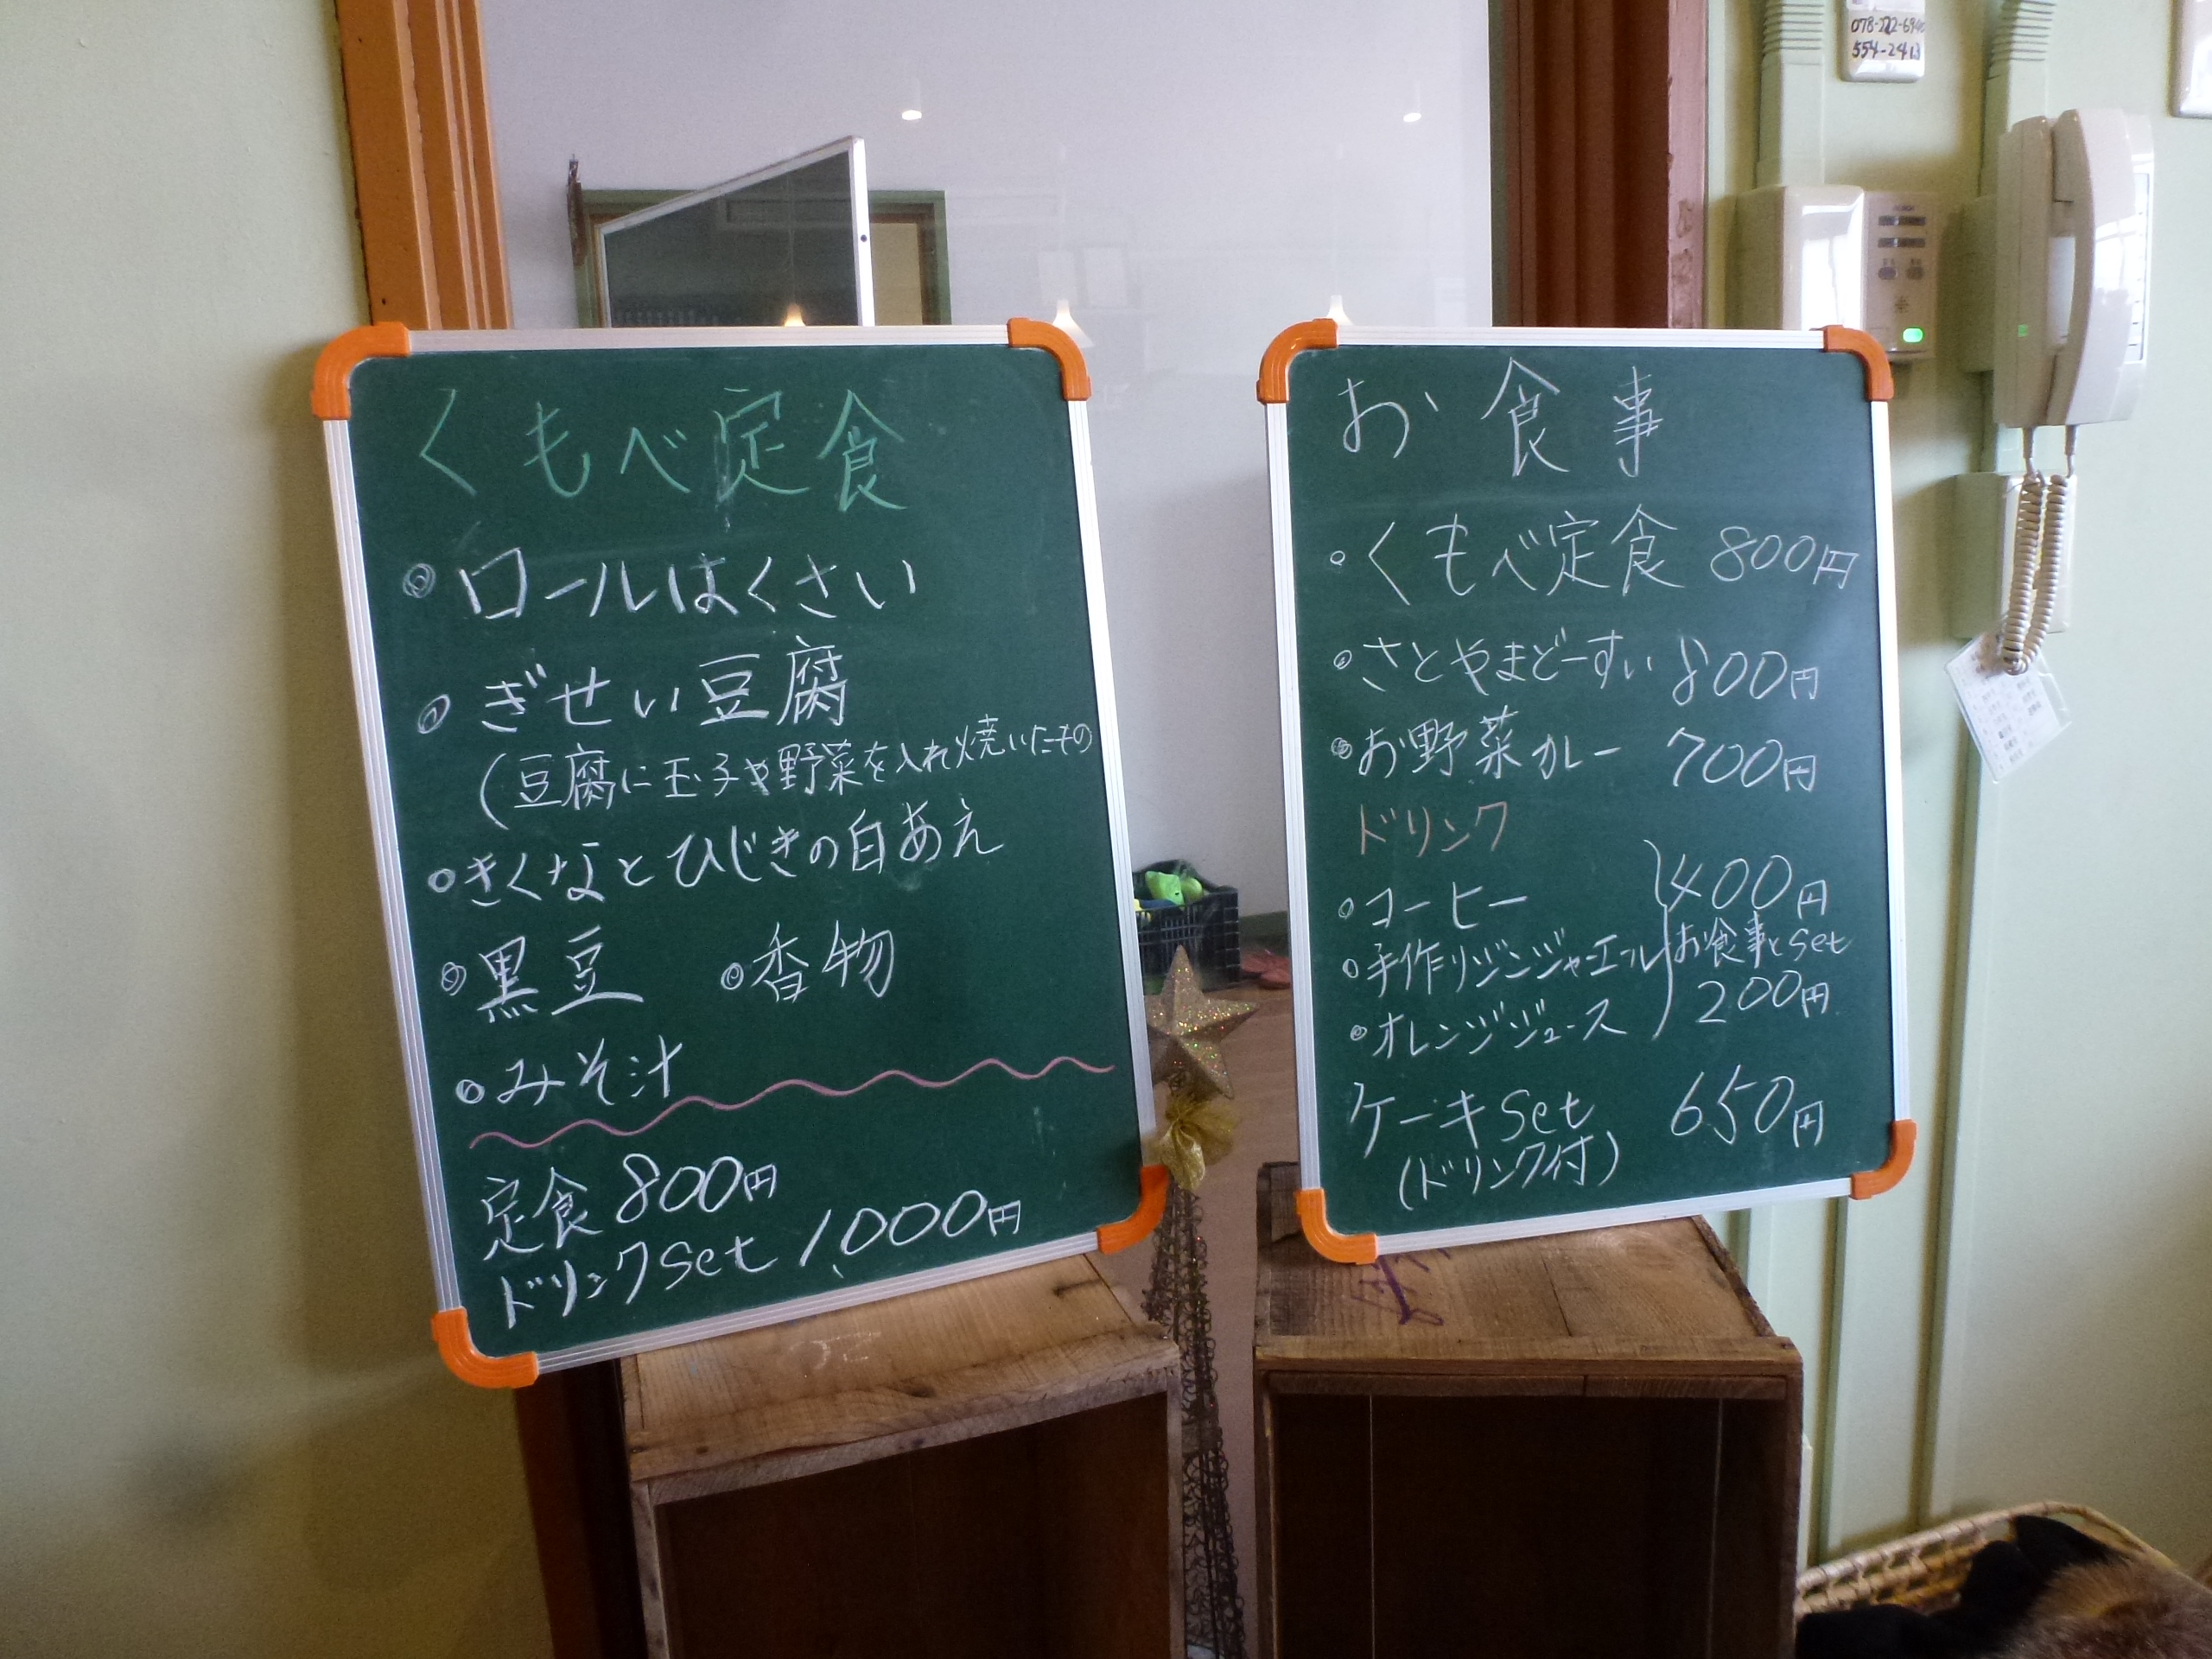 くもべ定食
ロールはくさい
ぎせい豆腐
(豆腐に玉子や野菜を入れ焼いたもの
きくなとひじきの白あえ
黒豆 香物
みそ汁
定食 800円
ドリンクset 1,000円
お食事
くもべ定食 800円
さとやまどーすい 800円
お野菜カレー 700円
ドリンク
コーヒー 400円
手作りジンジャーエール お食事とset
オレンジジュース 200円
ケーキset 650円
(ドリンク付)
554-2413